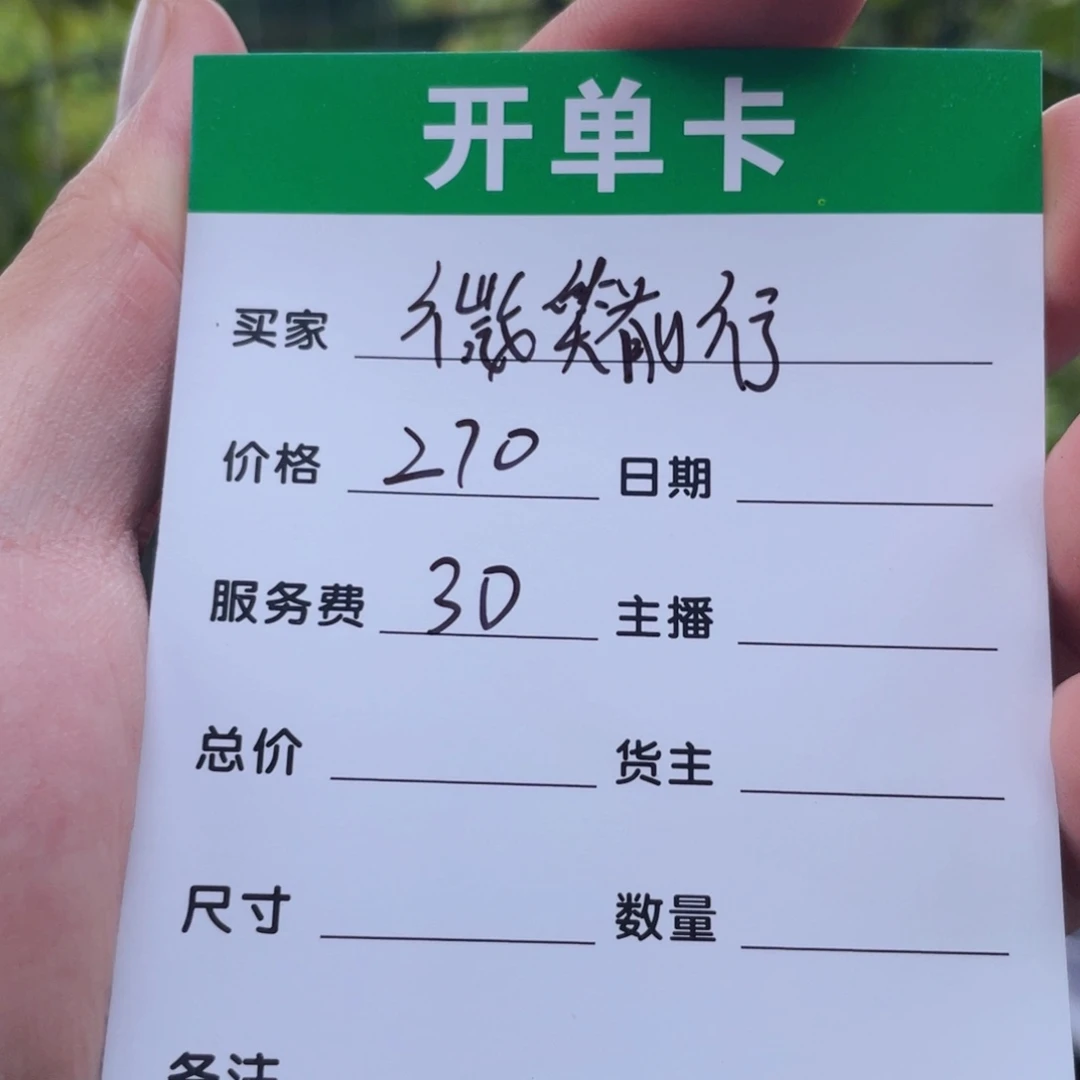 开单卡
买家 微笑前行
价格 270 日期
服务费 30 主播
总价 货主
尺寸 数量
备注